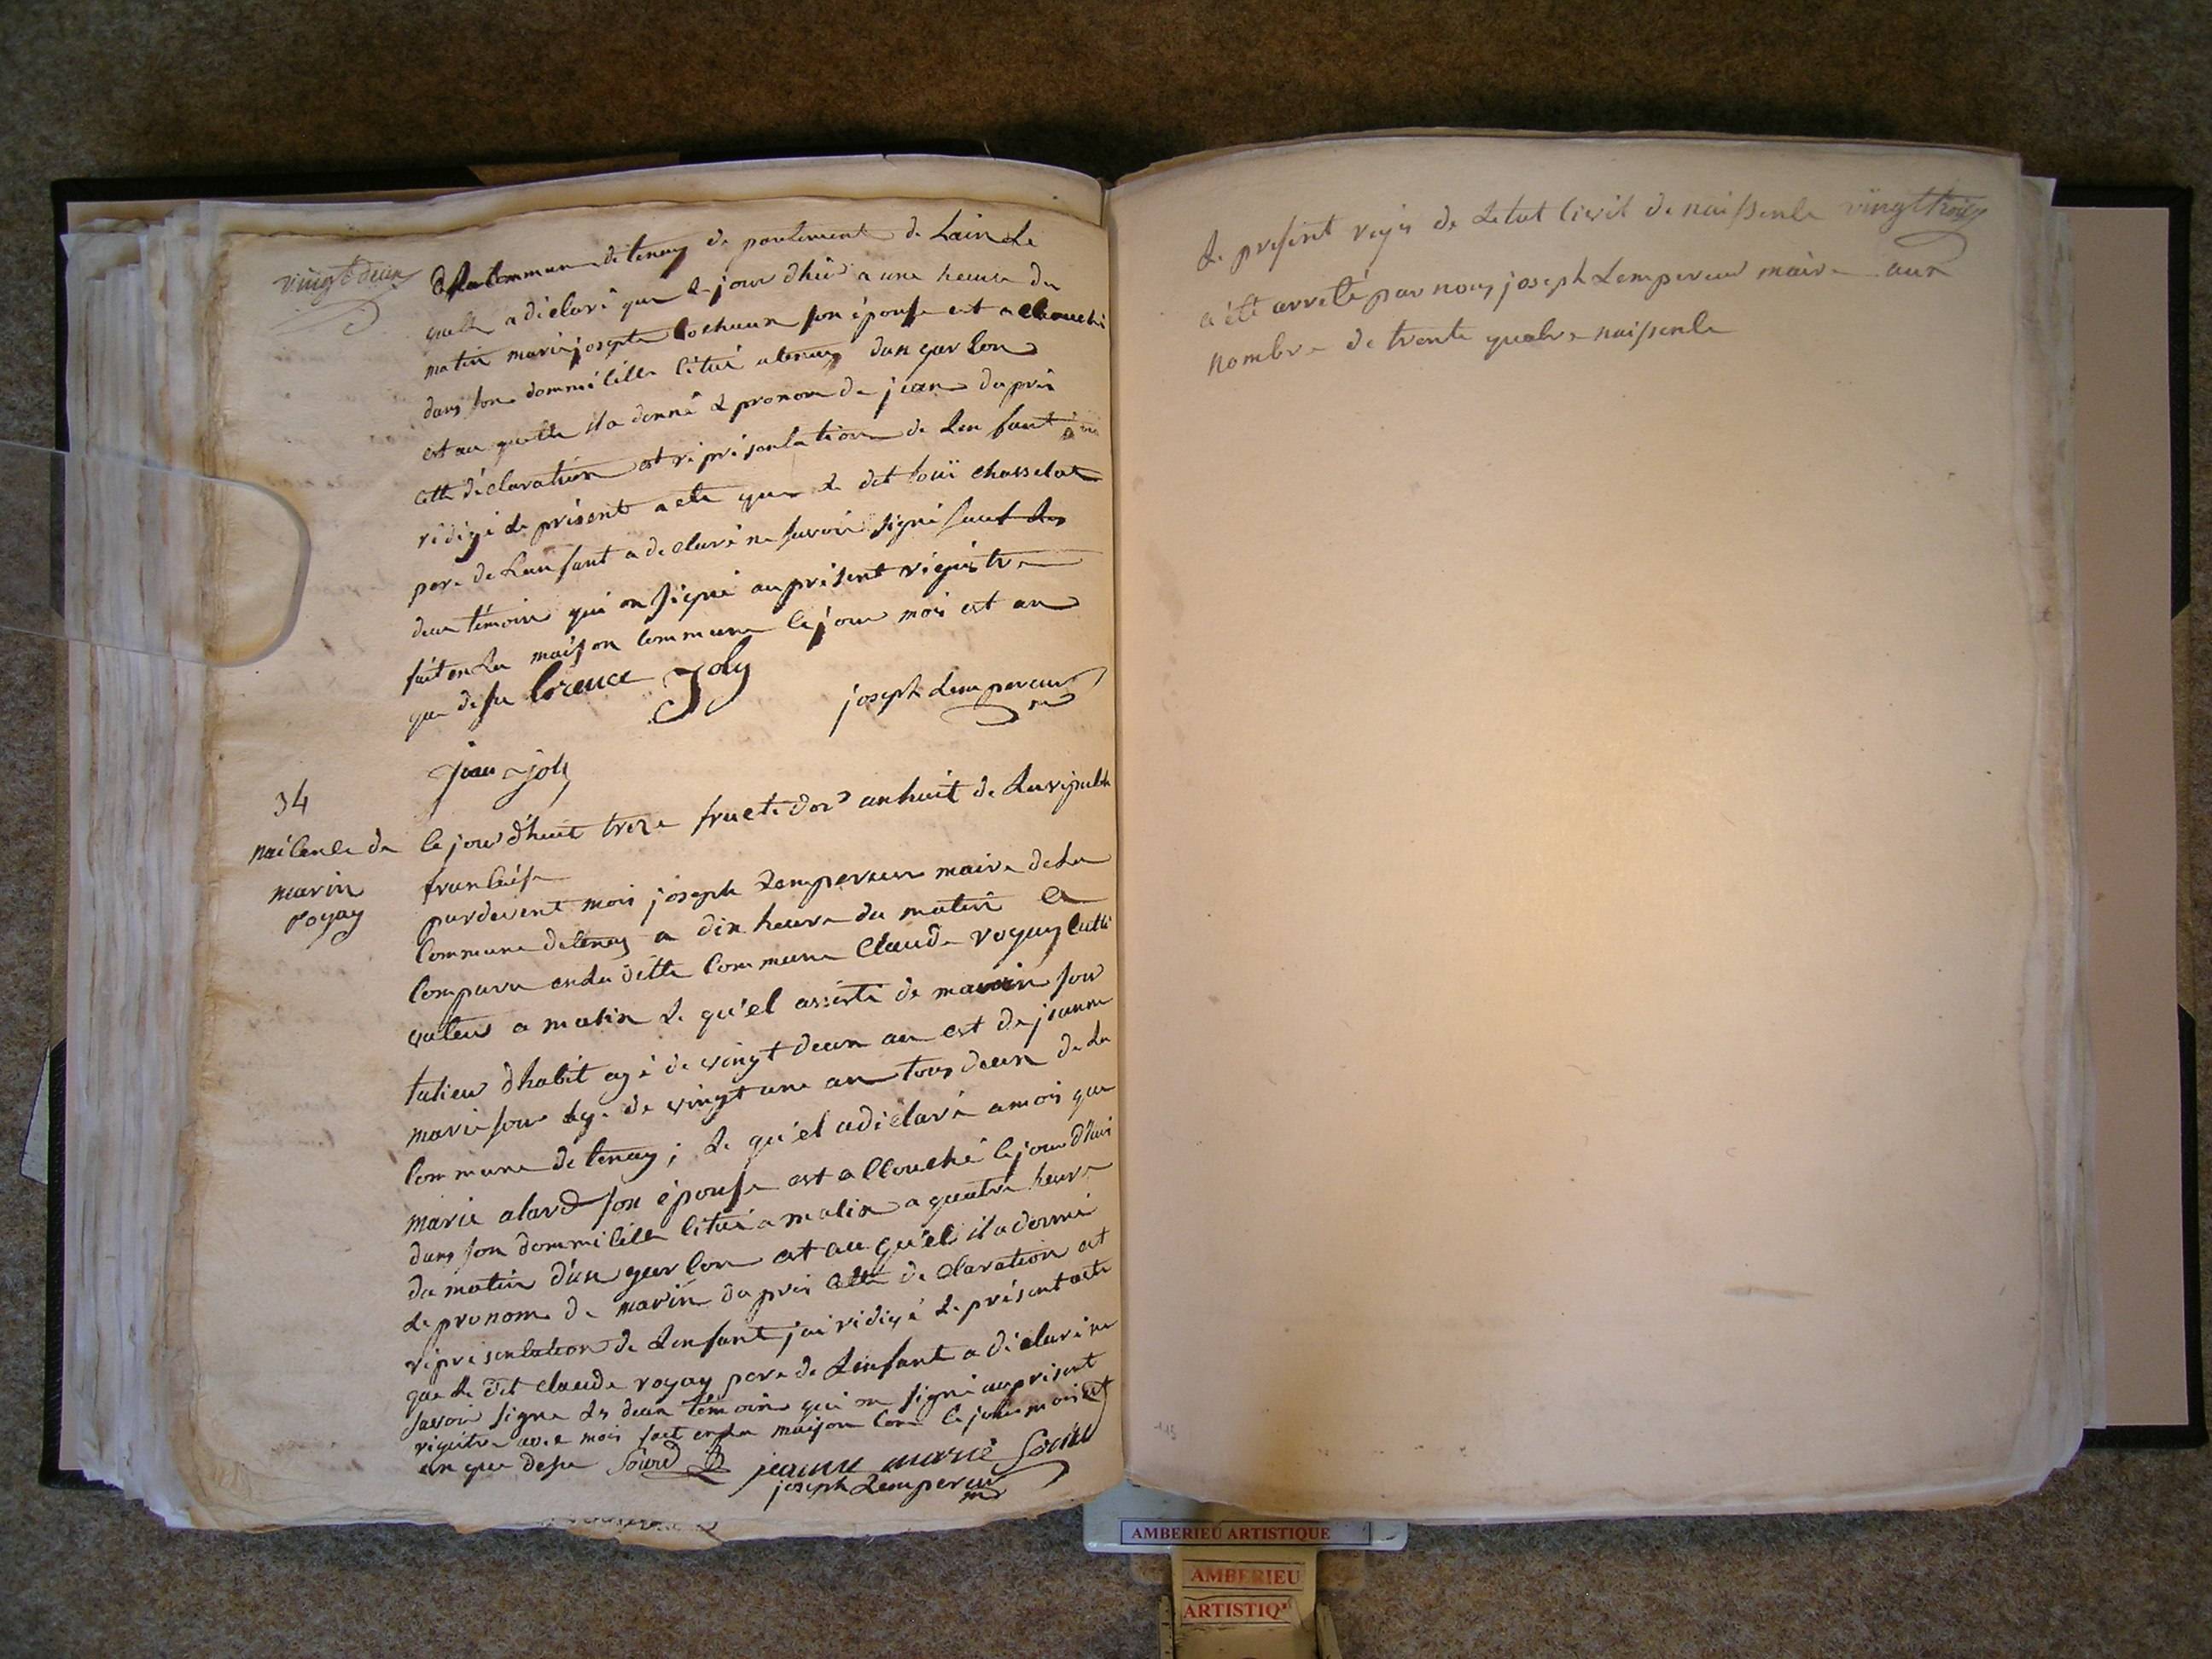 vingt deux
de la Commune de tenay de partement de Lain Le
quelle a déclaré que le jour dhui a une heure du
matin marie josepte Cocheux son épouse est accouché
dans son dommicille citué a tenay dun garson
est au quelle il a donné le pronom de jean daprès
cette déclaration est représentation de Lenfant
rédigé le présent acte que le dit louï chasselat
pere de Lenfant a déclaré ne savoir signé sauf les
deux témoins qui on signé au présent régistre
fait en La maison Commune le jour mois est an
que desu Lorence Joly
joseph Lempereur
jean joly
34
naicence de
marin
rogay
Ce jour dhuit treze fructidor an huit de La républi
francaise
pardevent moi joseph Lempereur maire de La
Commune de tenay a dix heure du matin a
Comparu en La ditte Commune Claude rogay culti
vateur a malix Le qu'el assisté de marin sour
talieur dhabit agé de vingt deux an est de jeanne
marie sour agé de vingt une an tous deux de La
Commune de tenay; Le qu'el a déclaré a moi que
marie alard son épouse est accouché le jour dhui
dans son dommicille citué a malix a quatre heure
du matin d'un garson est au qu'el il a donné
le pronom de marin daprès cette déclaration est
réprésentation de Lenfant jai rédigé Le présent acte
que Le dit claude rogay pere de Lenfant a déclaré ne
savoir signe Les deux témoins qui on signé au présent
régistre avec moi fait en La maison Com le jour mois est
an que desu Sourd jeanne marie Sourd
joseph Lempereur
Le present regis de Letat Civil de naissence vingt trois
a été arreté par nous joseph Lempereur maire aux
nombre de trente quatre naissence
115
AMBERIEU ARTISTIQUE
AMBERIEU
ARTISTIQ